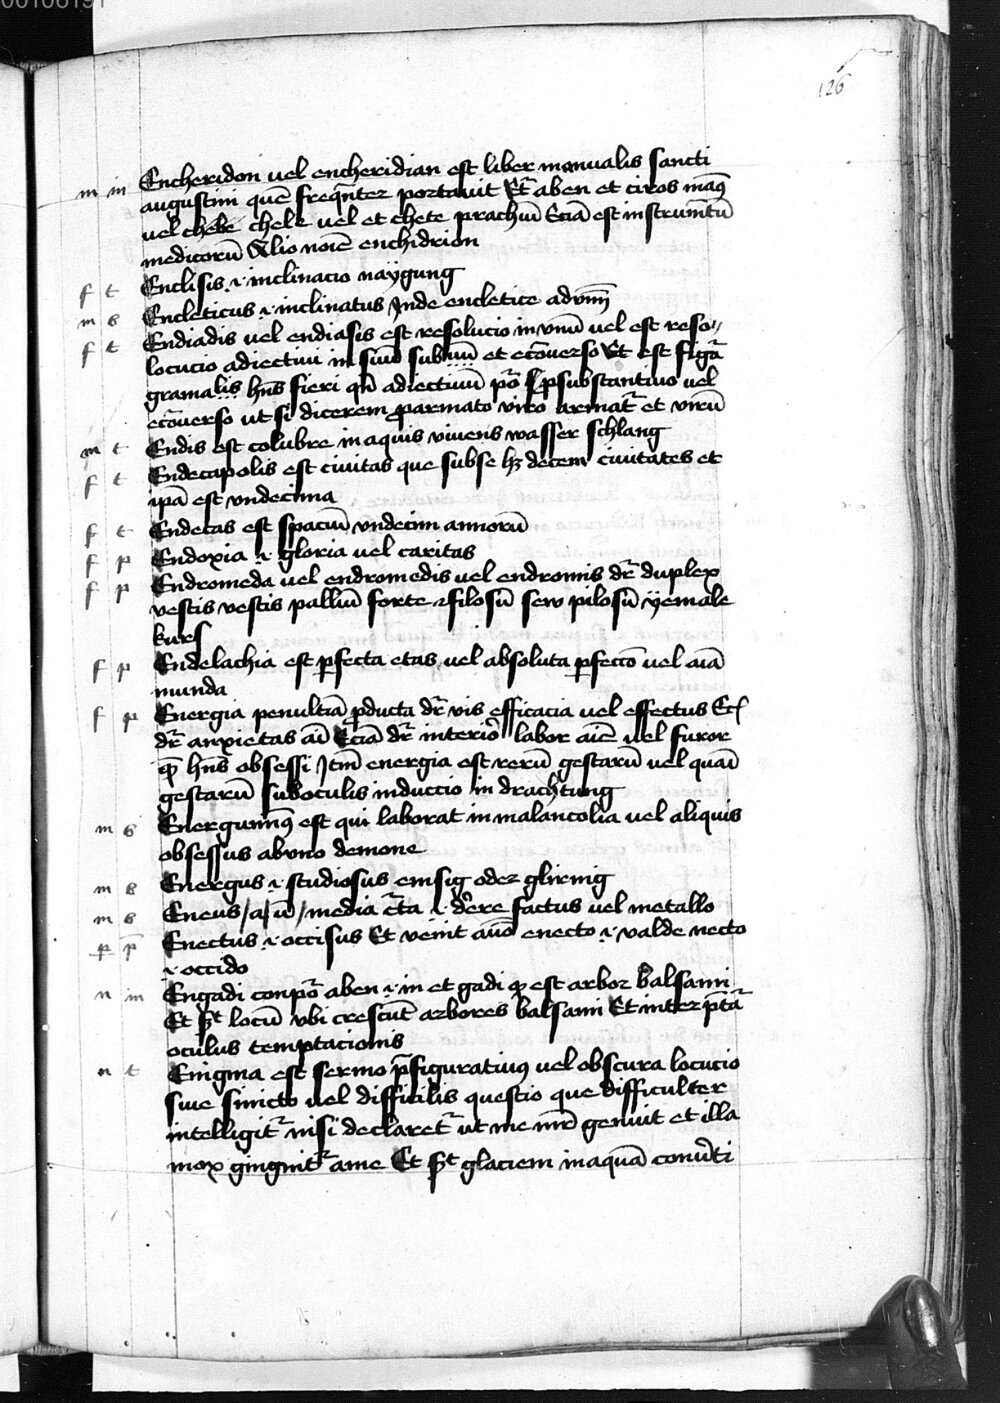 00106191
126
m m Encheridon vel encheridian est liber manualis sancti
augustini quē freqn̄ter portavit Et̄ aben et ciros man9
vel chebe chele vel et chete prachiū Eciā est instrumn̄tū
medicorū Alio noīe enchidrion
f t Enclisis .i. inclinacio naÿgung
m s Encleticus .i. inclinatus Inde encletice
f t Endiadis vel endiasis est resolucio in vnū vel est reso//
locucio adiectiui in suū et ecōuerso Et est figā
gramalis hn̄s fieri qn̄ adiectiuū substantiuo vel
ecōuerso ut si dicerem armato viro armat̄ et virū
m t Endis est colubre in aquis viuens wasser schlang
f t Endecapolis est ciuitas que sub se hz decem ciuitates et
ipā est vndecima
f t Endecas est spaciū vndecim annorū
f p Endoxia .i. gloria vel caritas
f p Endromeda vel endromedis vel endromis dr̄ duplex
vestis vestis palliū forte filosū sew pilosū yemale
kurs
f p Endelachia est pfecta etas vel absoluta pfeccō vel aīa
munda
f p Energia penultīa pducta dr̄ vis efficacia vel effectus Ecī
dr̄ anxietas aī Eciā dr̄ interior labor aīe vel furor
qē hn̄s obsessi Itm̄ energia est rerū gestarū vel quāi
gestarū sub oculis induccio in drachtung
m s Energumn̄9 est qui laborat in malancolia vel aliquis
obsessus ab vno demone
m s Energus .i. studiosus emsig oder
m s Eneus / a / ū / media c̄ta .i. de ere factus vel metallo
p p Enectus .i. occisus Et venit enecto .i. valde necto
.i. occido
n m Engadi aben .i. in et gadi qē est arbor balsami
Et locū vbi crescūt arbores balsami Et inter
oculus temptacionis
n t Enigma est sermo p̄figuratiu9 vel obscura locucio
siue vel difficilis questio que difficulter
intelligit̄ nisi declaret̄ ut me mr̄ genuit et illa
mox gingnit̄ a me Et glaciem in aquā